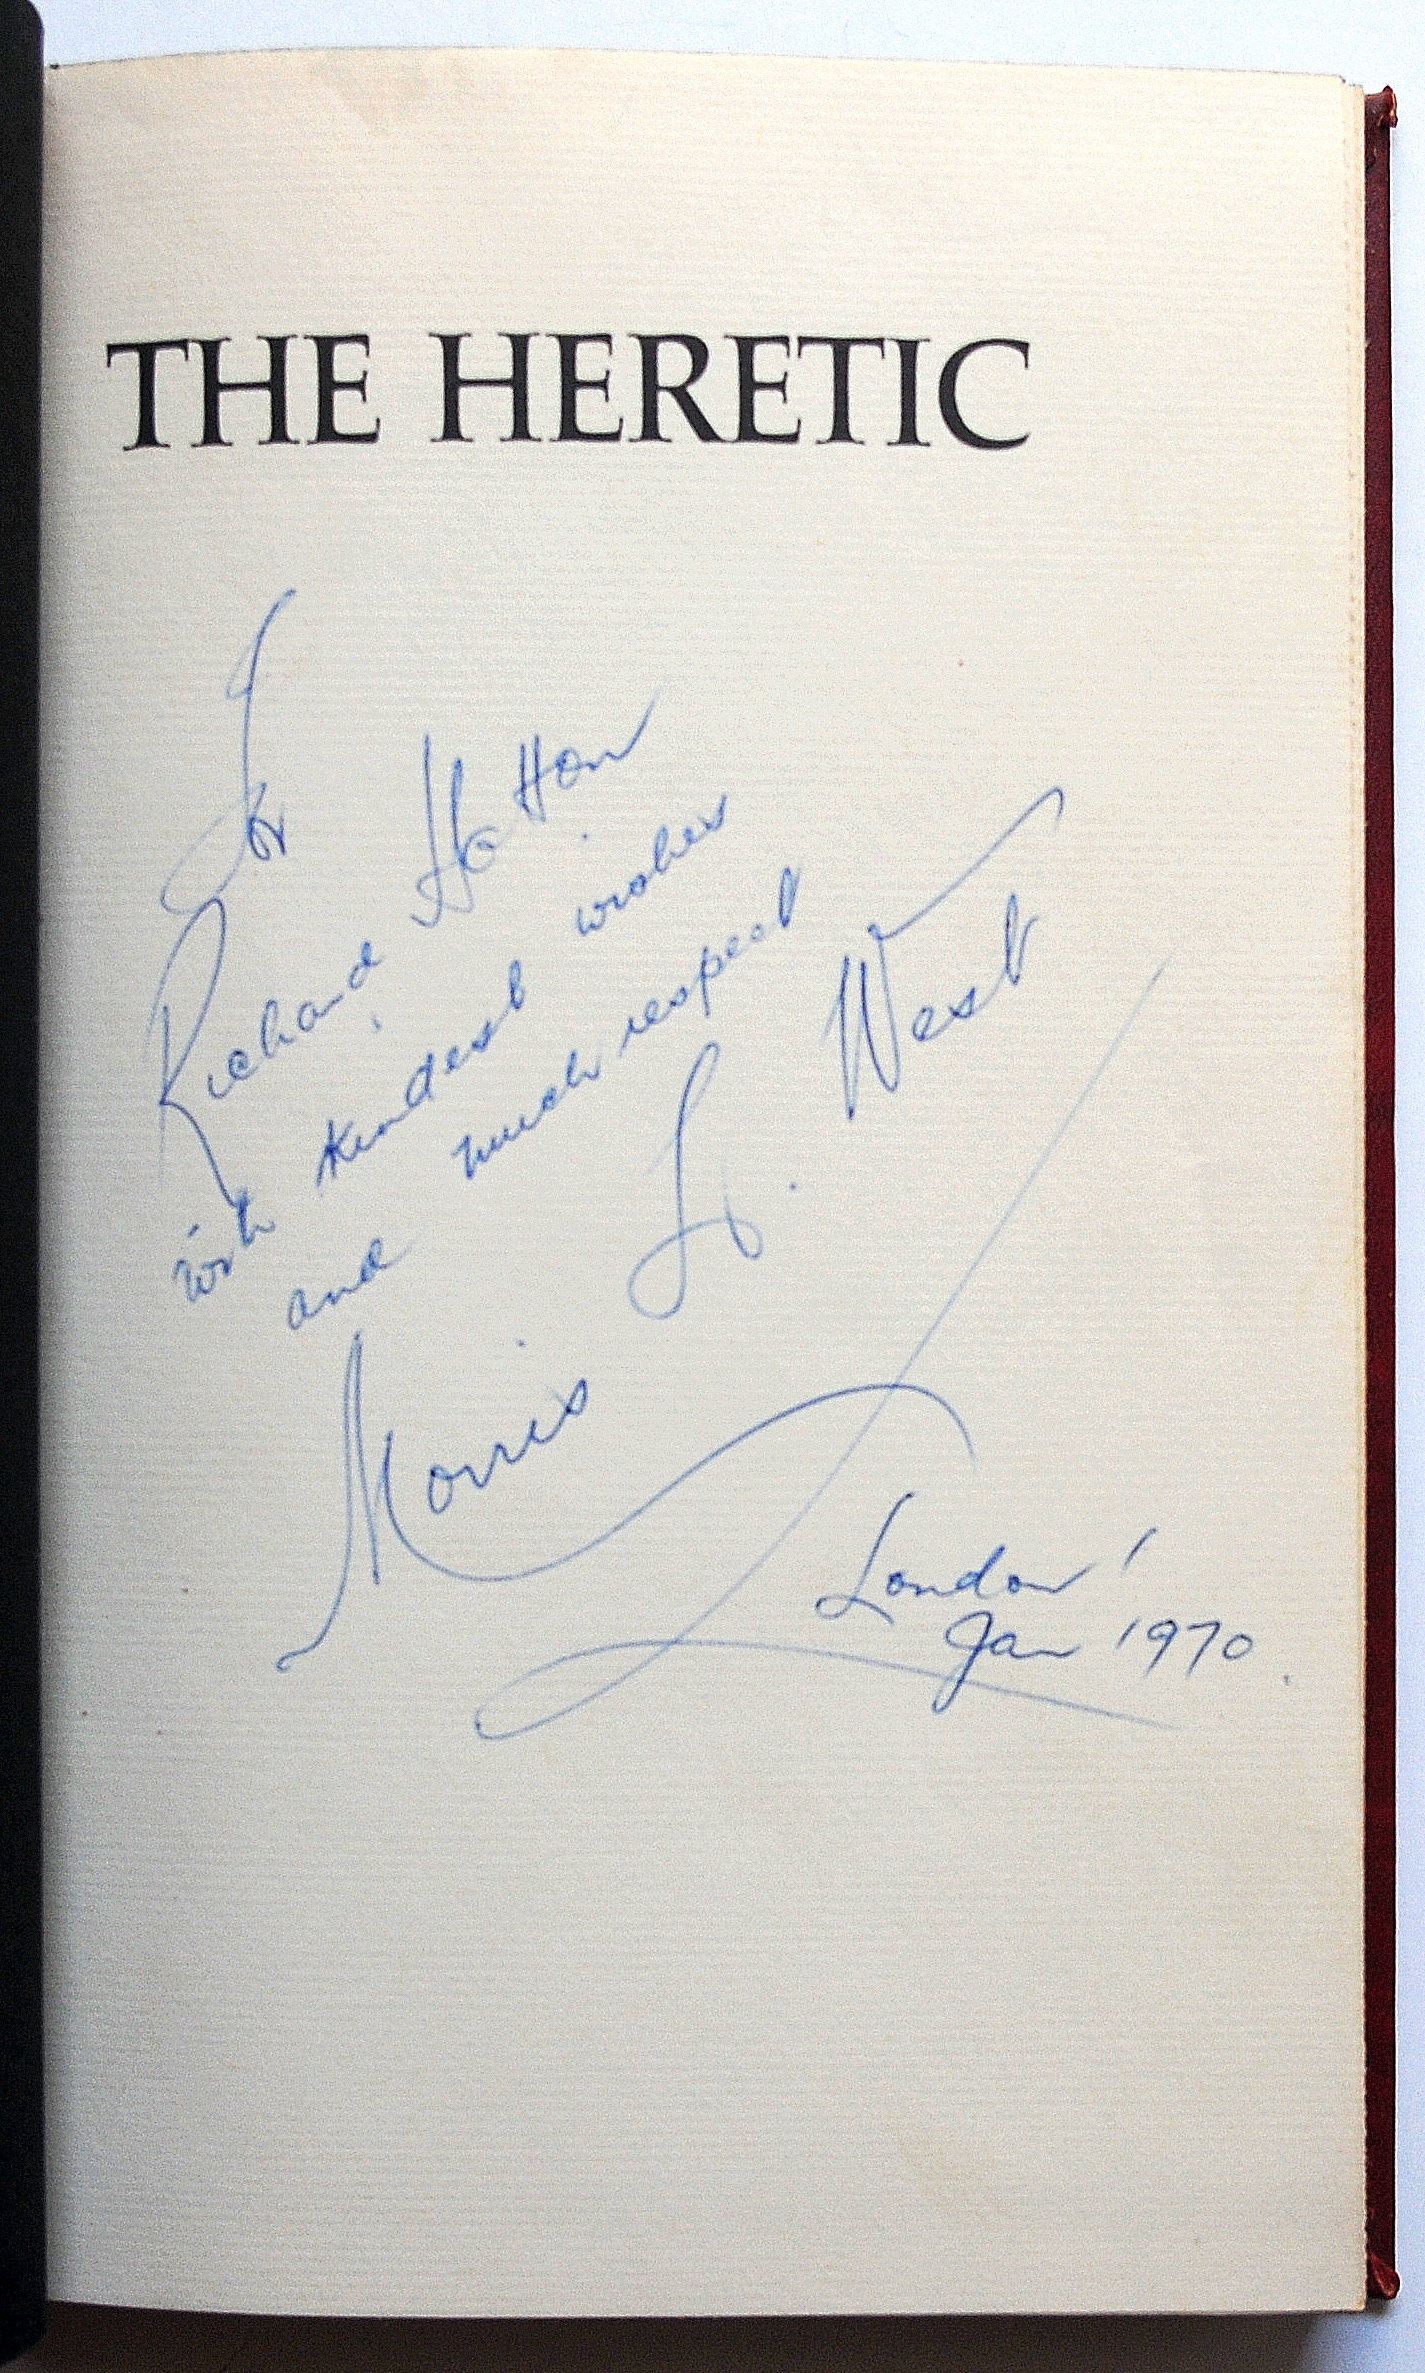 THE HERETIC
For
Richard Hatton
with kindest wishes
and much respect
Morris L. West
London'
Jan 1970.